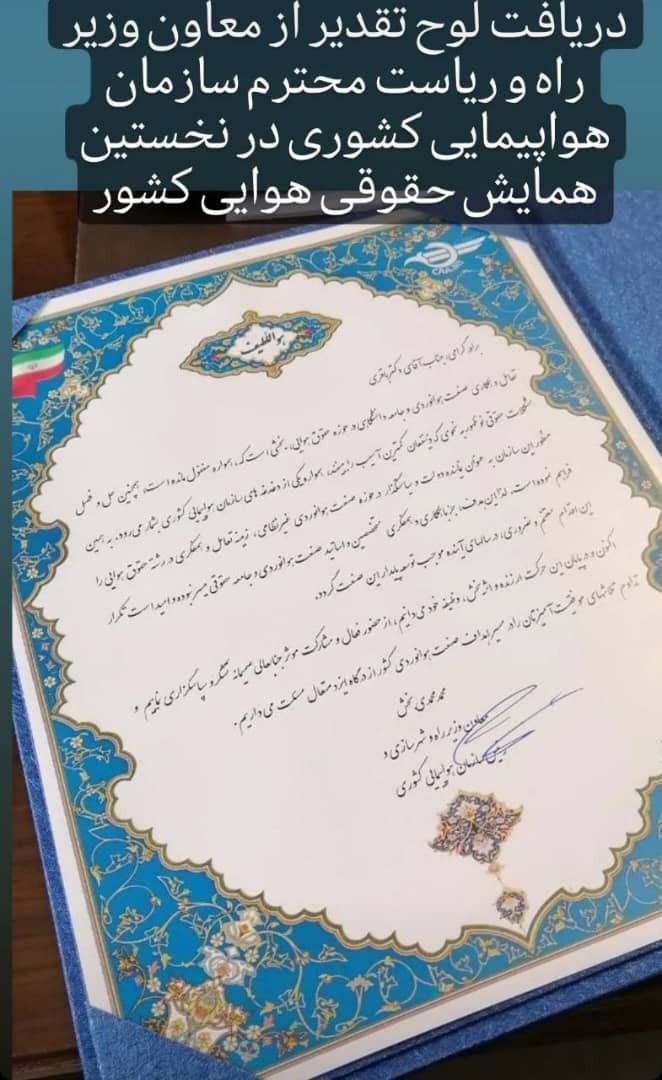 دریافت لوح تقدیر از معاون وزیر
راه و ریاست محترم سازمان
هواپیمایی کشوری در نخستین
همایش حقوقی هوایی کشور
هواللطیف
برادر گرامی، جناب آقای دکتر باقری
تعامل و همکاری صنعت هوانوردی و جامعه دانشگاهی در حوزه حقوق هوایی، بخشی است که، همواره مغفول مانده است، همچنین حل و فصل
مشکلات حقوقی نوظهور به نحوی که ذینفعان کمترین آسیب را ببینند، همواره یکی از دغدغه های سازمان هواپیمایی کشوری بشمار می رود، به همین
منظور این سازمان به عنوان نماینده دولت و سیاستگزار در حوزه صنعت هوانوردی غیرنظامی، زمینه تعامل و همفکری در رشته حقوق هوایی را
فراهم نموده است. لذا این هدف، جز با همکاری و همفکری متخصصین و اساتید صنعت هوانوردی و جامعه حقوقی میسر نبوده و امید است تکرار
این اقدام مغتنم و ضروری، در سالهای آینده موجب توسعه پایدار این صنعت گردد.
اکنون و در پایان این حرکت ارزنده و اثربخش، وظیفه خود می دانیم، از حضور فعال و مشارکت موثر جنابعالی صمیمانه تشکر و سپاسگزاری نمایم و
تداوم تلاشهای موفقیت آمیزتان را در مسیر اهداف صنعت هوانوردی کشور از درگاه ایزد متعال مسئلت می داریم.
محمد محمدی بخش
معاون وزیر راه و شهرسازی و
رئیس سازمان هواپیمایی کشوری